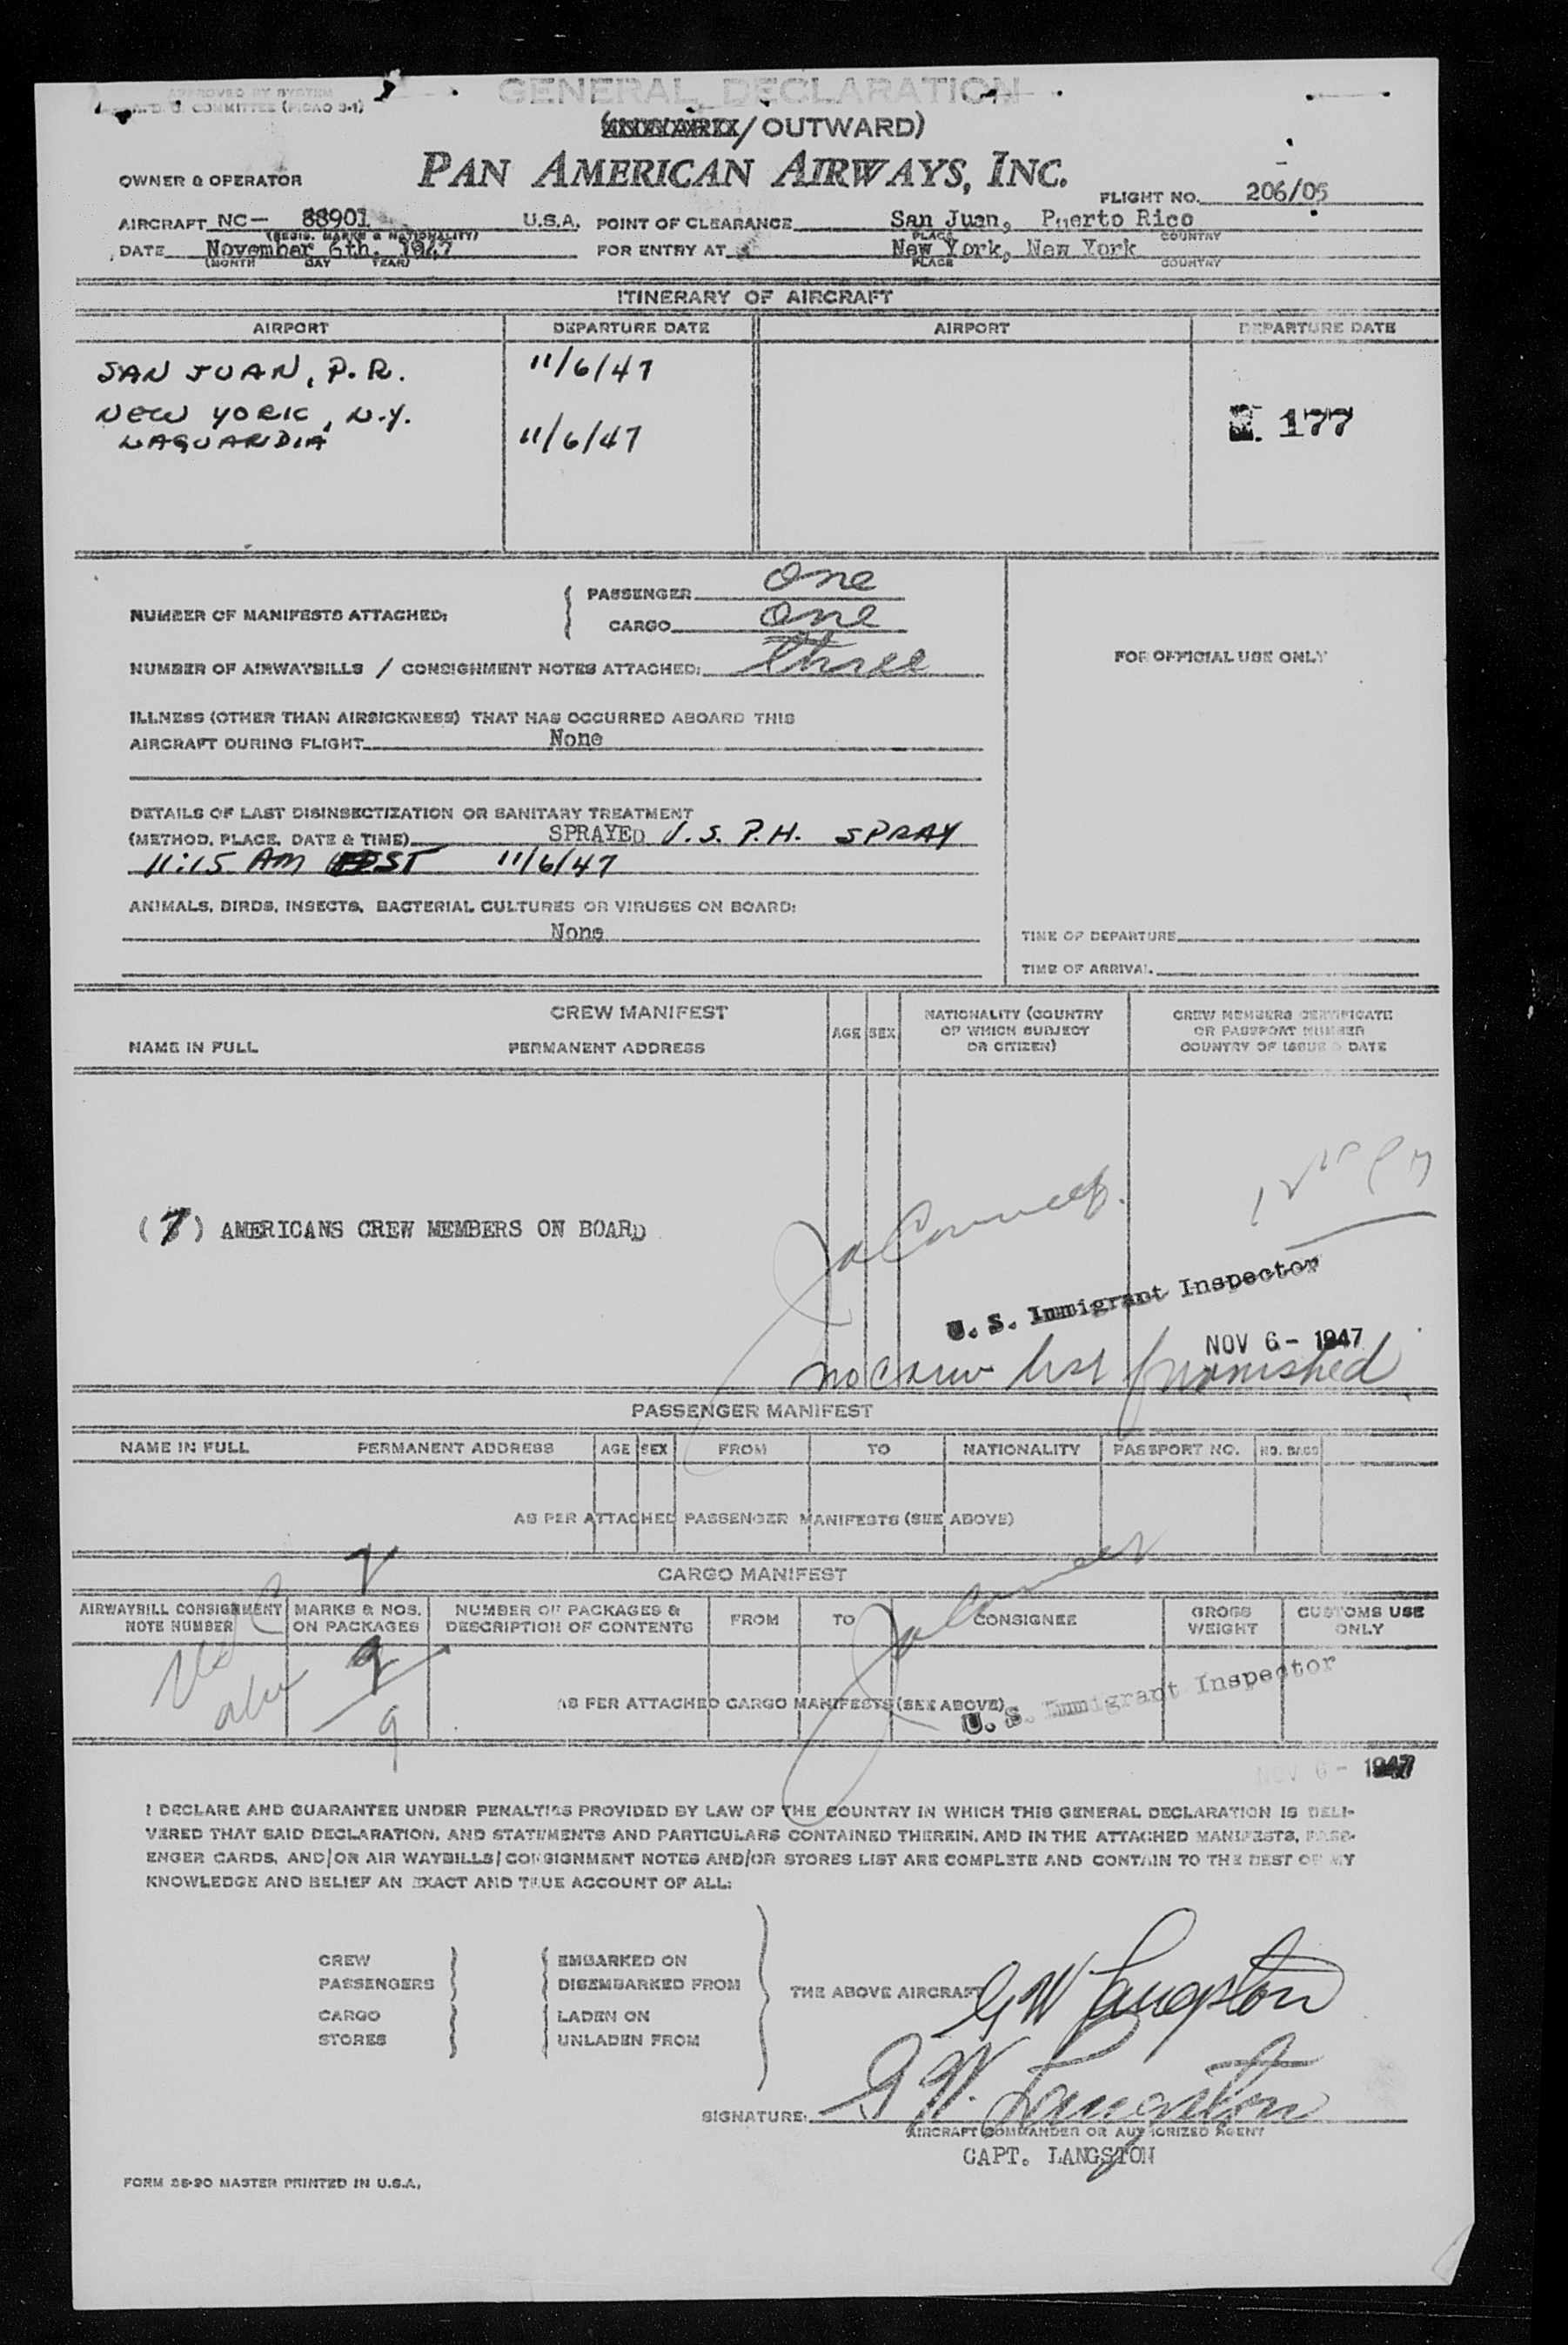 APPROVED BY SYSTEM
COMMITTEE (PICAO 3-1)
GENERAL DECLARATION
/OUTWARD)
OWNER & OPERATOR PAN AMERICAN AIRWAYS, INC. FLIGHT NO. 206/05
AIRCRAFT NC- 88901 U.S.A. POINT OF CLEARANCE San Juan, Puerto Rico
(REGIS. MARKS & NATIONALITY) PLACE COUNTRY
DATE November 6th. 1947 FOR ENTRY AT New York, New York
(MONTH DAY YEAR) PLACE COUNTRY
ITINERARY OF AIRCRAFT
AIRPORT DEPARTURE DATE AIRPORT DEPARTURE DATE
SAN JUAN, P.R. 11/6/47
NEW YORK, N.Y.
LAGUARDIA 11/6/47
177
NUMBER OF MANIFESTS ATTACHED: PASSENGER One
CARGO One
NUMBER OF AIRWAYBILLS / CONSIGNMENT NOTES ATTACHED: three
FOR OFFICIAL USE ONLY
ILLNESS (OTHER THAN AIRSICKNESS) THAT HAS OCCURRED ABOARD THIS
AIRCRAFT DURING FLIGHT None
DETAILS OF LAST DISINSECTIZATION OR SANITARY TREATMENT
(METHOD, PLACE, DATE & TIME) SPRAYED U.S.P.H. SPRAY
11:15 AM EST 11/6/47
ANIMALS, BIRDS, INSECTS, BACTERIAL CULTURES OR VIRUSES ON BOARD:
None
TIME OF DEPARTURE
TIME OF ARRIVAL
CREW MANIFEST
NAME IN FULL PERMANENT ADDRESS AGE SEX NATIONALITY (COUNTRY OF WHICH SUBJECT OR CITIZEN) CREW MEMBERS CERTIFICATE OR PASSPORT NUMBER COUNTRY OF ISSUE & DATE
(7) AMERICANS CREW MEMBERS ON BOARD
U. S. Immigrant Inspector
NOV 6 - 1947
no crew list furnished
PASSENGER MANIFEST
NAME IN FULL PERMANENT ADDRESS AGE SEX FROM TO NATIONALITY PASSPORT NO. NO. BAGS
AS PER ATTACHED PASSENGER MANIFESTS (SEE ABOVE)
CARGO MANIFEST
AIRWAYBILL CONSIGNMENT NOTE NUMBER MARKS & NOS. ON PACKAGES NUMBER OF PACKAGES & DESCRIPTION OF CONTENTS FROM TO CONSIGNEE GROSS WEIGHT CUSTOMS USE ONLY
9
AS PER ATTACHED CARGO MANIFESTS (SEE ABOVE)
U. S. Immigrant Inspector
NOV 6 - 1947
I DECLARE AND GUARANTEE UNDER PENALTIES PROVIDED BY LAW OF THE COUNTRY IN WHICH THIS GENERAL DECLARATION IS DELI-
VERED THAT SAID DECLARATION, AND STATEMENTS AND PARTICULARS CONTAINED THEREIN, AND IN THE ATTACHED MANIFESTS, PASS-
ENGER CARDS, AND/OR AIR WAYBILLS/CONSIGNMENT NOTES AND/OR STORES LIST ARE COMPLETE AND CONTAIN TO THE BEST OF MY
KNOWLEDGE AND BELIEF AN EXACT AND TRUE ACCOUNT OF ALL:
CREW EMBARKED ON
PASSENGERS DISEMBARKED FROM
THE ABOVE AIRCRAFT G W Langston
CARGO LADEN ON
STORES UNLADEN FROM
SIGNATURE: G W. Langston
AIRCRAFT COMMANDER OR AUTHORIZED AGENT
CAPT. LANGSTON
FORM 35-20 MASTER PRINTED IN U.S.A.